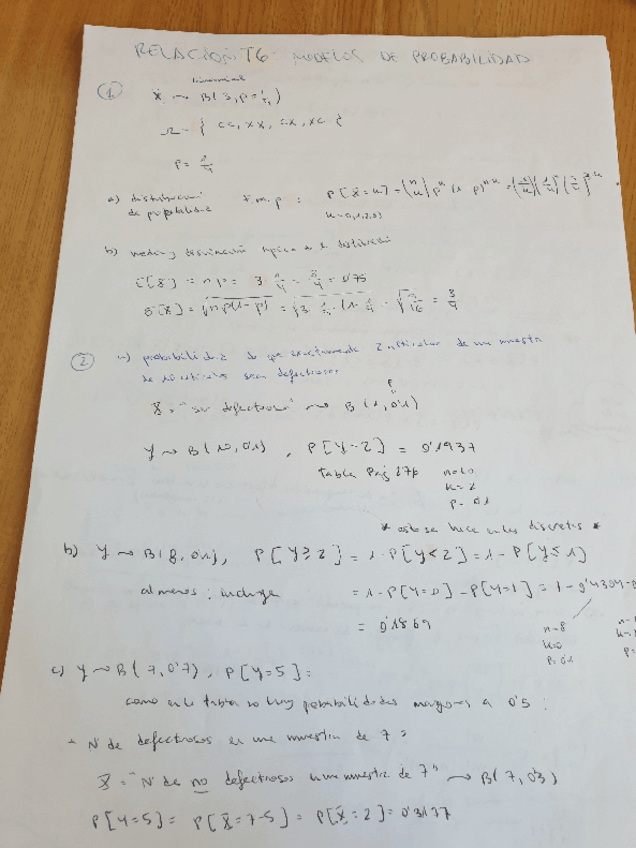 RELACIÓN T6 MODELOS DE PROBABILIDAD
binomial
① X ~ B(3, p=1/4)
Ω = { CC, XX, CX, XC }
P = 1/4
a) distribución de probabilidad f.m.p : P[X=k] = (n k) p^k (1-p)^n-k =
k=0,1,2,3
b) media y desviación típica de la distribución
E[X] = np = 3 · 1/4 = 3/4 = 0'75
σ[X] = √np(1-p) = √3 · 1/4 · (1-1/4) = √9/16 = 3/4
② a) probabilidad de que exactamente 2 artículos de una muestra
de 10 artículos sean defectuosos
p
X = "ser defectuoso" ~ B(1, 0'1)
Y ~ B(10, 0'1) , P[Y=2] = 0'1937
tabla Pag 276 n=10
k=2
p=0'1
* esto se hace en las discretas *
b) Y ~ B(8, 0'1), P[Y≥2] = 1-P[Y<2] = 1-P[Y≤1]
al menos : incluye = 1-P[Y=0]-P[Y=1] = 1-0'4304-
= 0'1869
n=8
k=0
p=0'1
c) Y ~ B(7, 0'7), P[Y=5] =
como en la tabla no hay probabilidades mayores a 0'5 :
Nº de defectuosos en una muestra de 7 =
X = "Nº de no defectuosos en una muestra de 7" ~ B(7, 0'3)
P[Y=5] = P[X=7-5] = P[X=2] = 0'3177